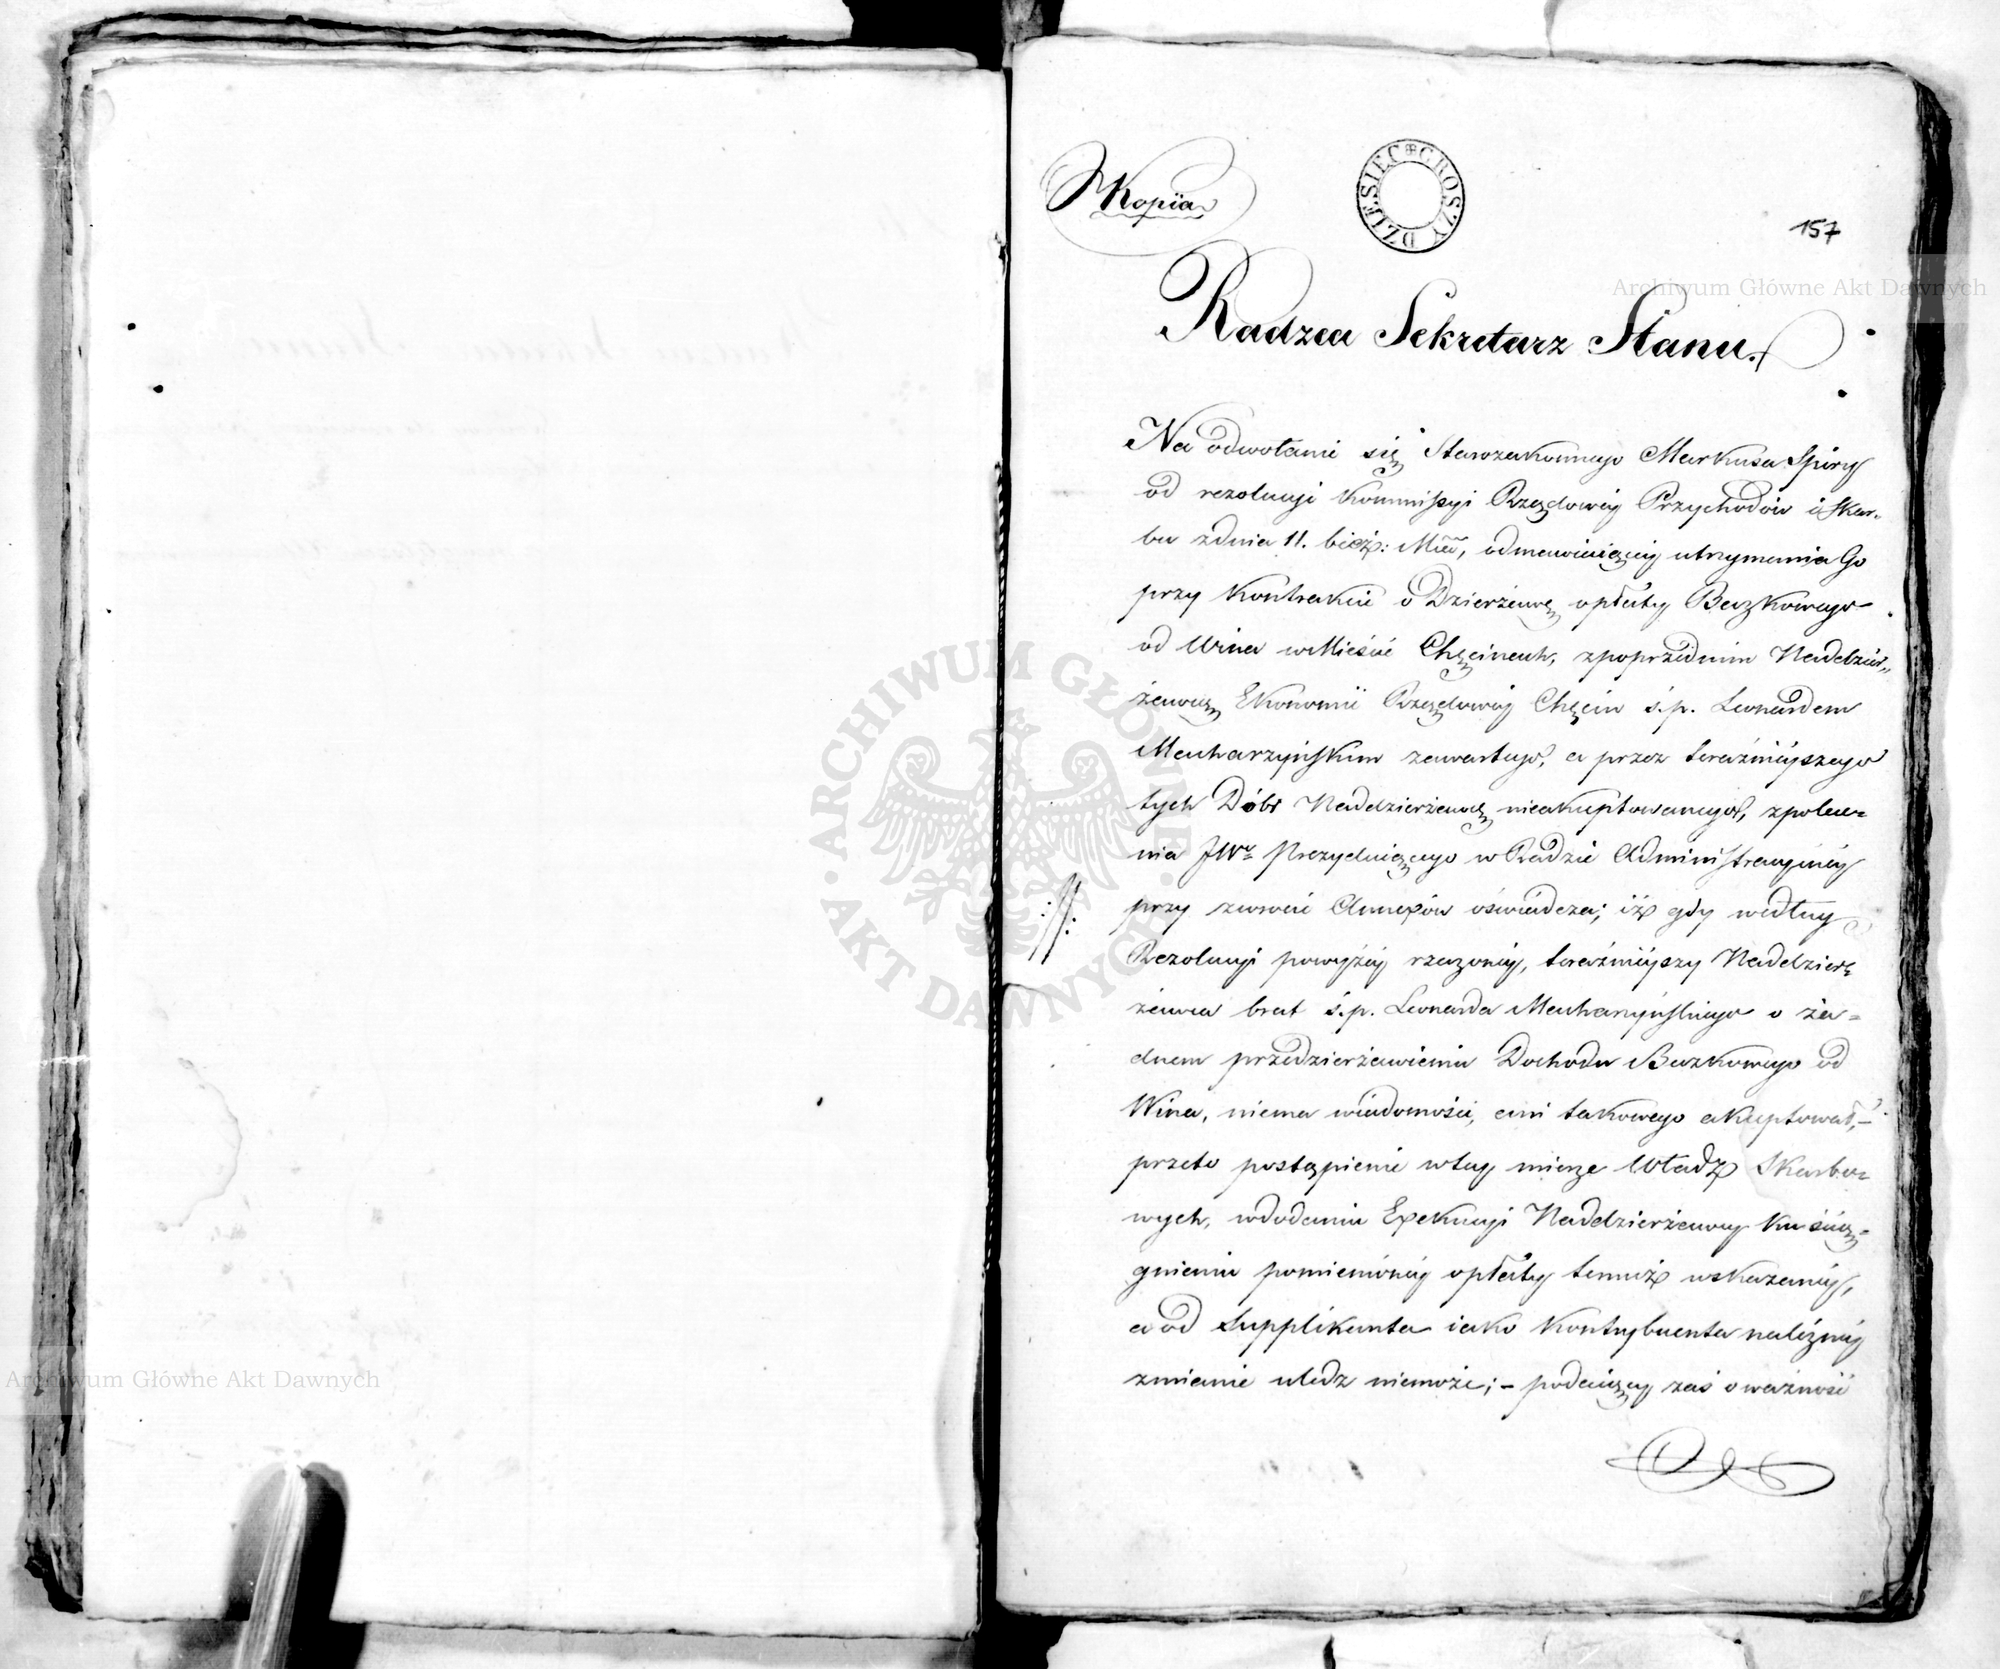 Kopia
DZIESIĘC GROSZY
157
Radzca Sekretarz Stanu.
Na odwołanie się Starozakonnego Markusa Spiry
od rezolucyi Kommissyi Rządowéy Przychodów i Skar-
bu z dnia 11. bież: Mca, odmawiaiącéy utrzymania Go
przy Kontrakcie o Dzierżawę opłaty Beczkowego
od Wina w Mieście Chęcinach, z poprzednim Naddzier-
żawcą Ekonomii Rządowéy Chęcin ś.p. Leonardem
Mecharzyńskim zawartego, a przez teraźnieyszego
tych Dóbr Naddzierżawcę nieakceptowanego, z polece-
nia JWo Prezyduiącego w Radzie Administracyinéy
przy zwrocie Annexów oświadcza; iż gdy według
Rezolucyi powyżéy rzeczonéy, teraźnieyszy Naddzier-
żawca brat ś.p. Leonarda Mecharzyńskiego o ża-
dnem przedzierżawieniu Dochodu Beczkowego od
Wina, niema wiadomości, ani takowego akceptował,-
przeto postąpienie w téy mierze Władz Skarbo-
wych, w dodaniu Exekucyi Naddzierżawcy ku ścią-
gnieniu pomienionéy opłaty temuż wskazanéy,
a od Supplikanta iako Kontrybuenta należnéy
zmianie uledz niemoże; - podaiący zaś o ważność
Archiwum Główne Akt Dawnych
Archiwum Główne Akt Dawnych
ARCHIWUM GŁÓWNE AKT DAWNYCH